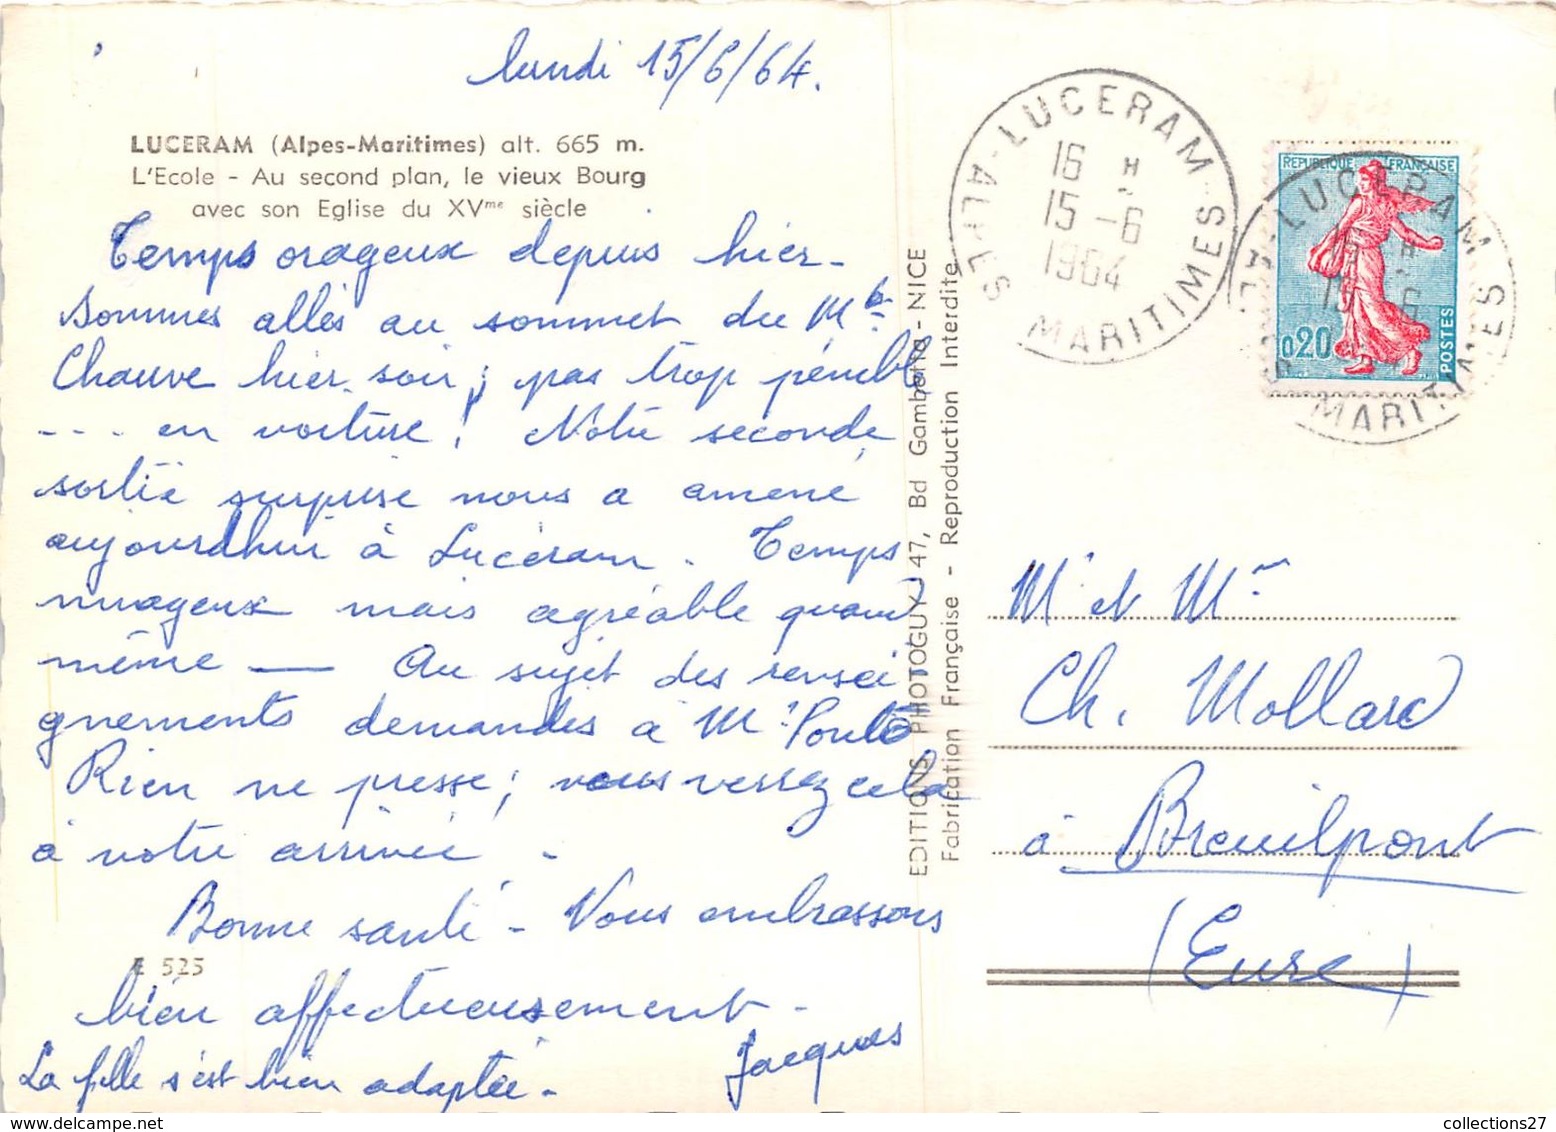 lundi 15/6/64.
LUCERAM (Alpes-Maritimes) alt. 665 m.
L'Ecole - Au second plan, le vieux Bourg
avec son Eglise du XVme siècle
Temps orageux depuis hier-
Sommes allés au sommet du Mt
Chauve hier soir; pas trop pénible,
--- en voiture! Notre seconde
sortie surprise nous a amené
aujourdhui à Lucéram. Temps
nuageux mais agréable quand
même — Au sujet des rensei-
gnements demandés à Mr
Rien ne presse; vous verrez cela
à votre arrivée -
Bonne santé - Vous embrassons
bien affectueusement -
Jacques
La fille s'est bien adaptée -
E 525
EDITIONS PHOTOGUY, 47, Bd Gambetta - NICE
Fabrication Française - Reproduction Interdite
LUCERAM
16 H
15 -6
1964
ALPES-MARITIMES
REPUBLIQUE FRANÇAISE
0,20
POSTES
LUCERAM
MARITIMES
Mr et Me
Ch. Mollard
à Breuilpont
(Eure)
collections27